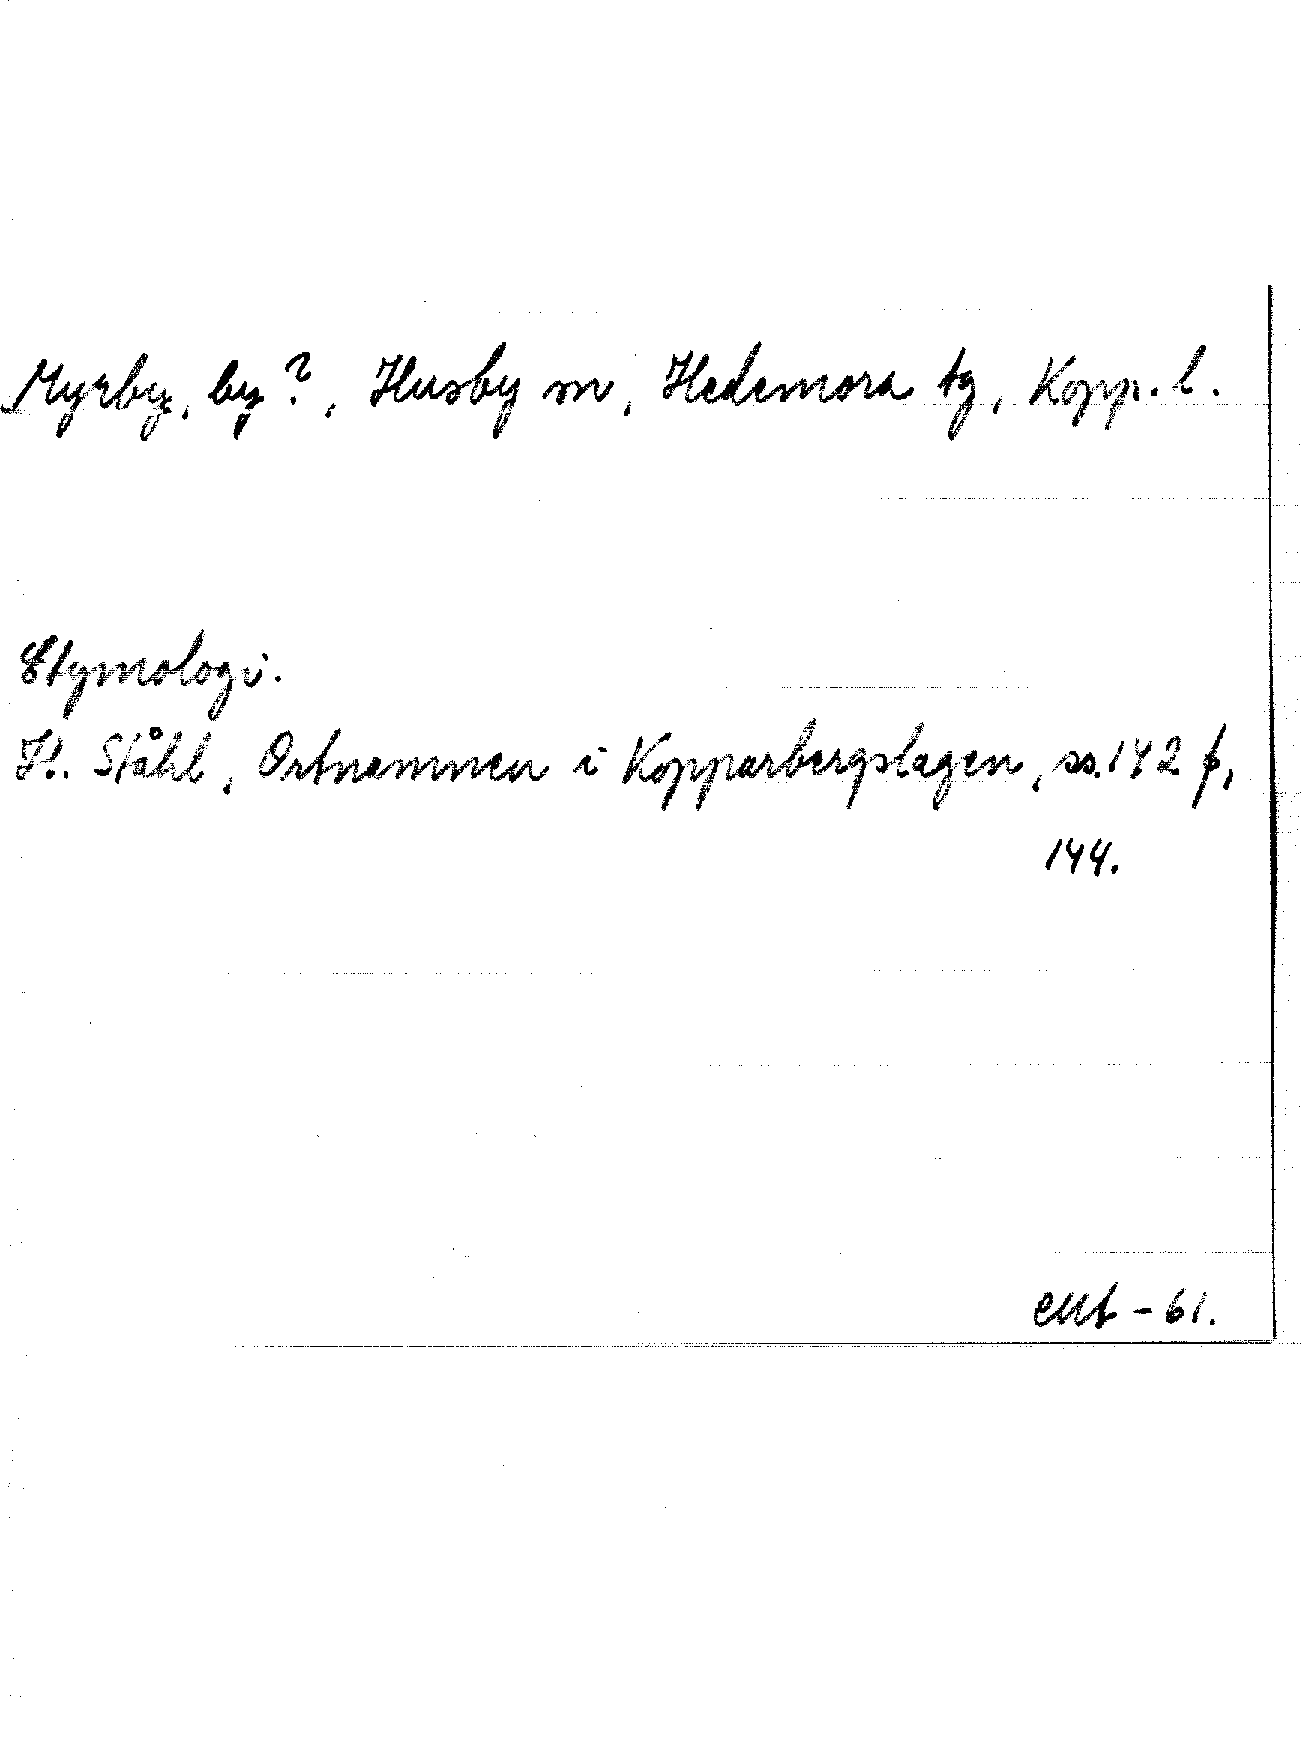 Myrby, by?, Husby sn, Hedemora tg, Kopp. l.
Etymologi.
H. Ståhl, Ortnamnen i Kopparbergslagen, ss. 142 f,
144.
-61.